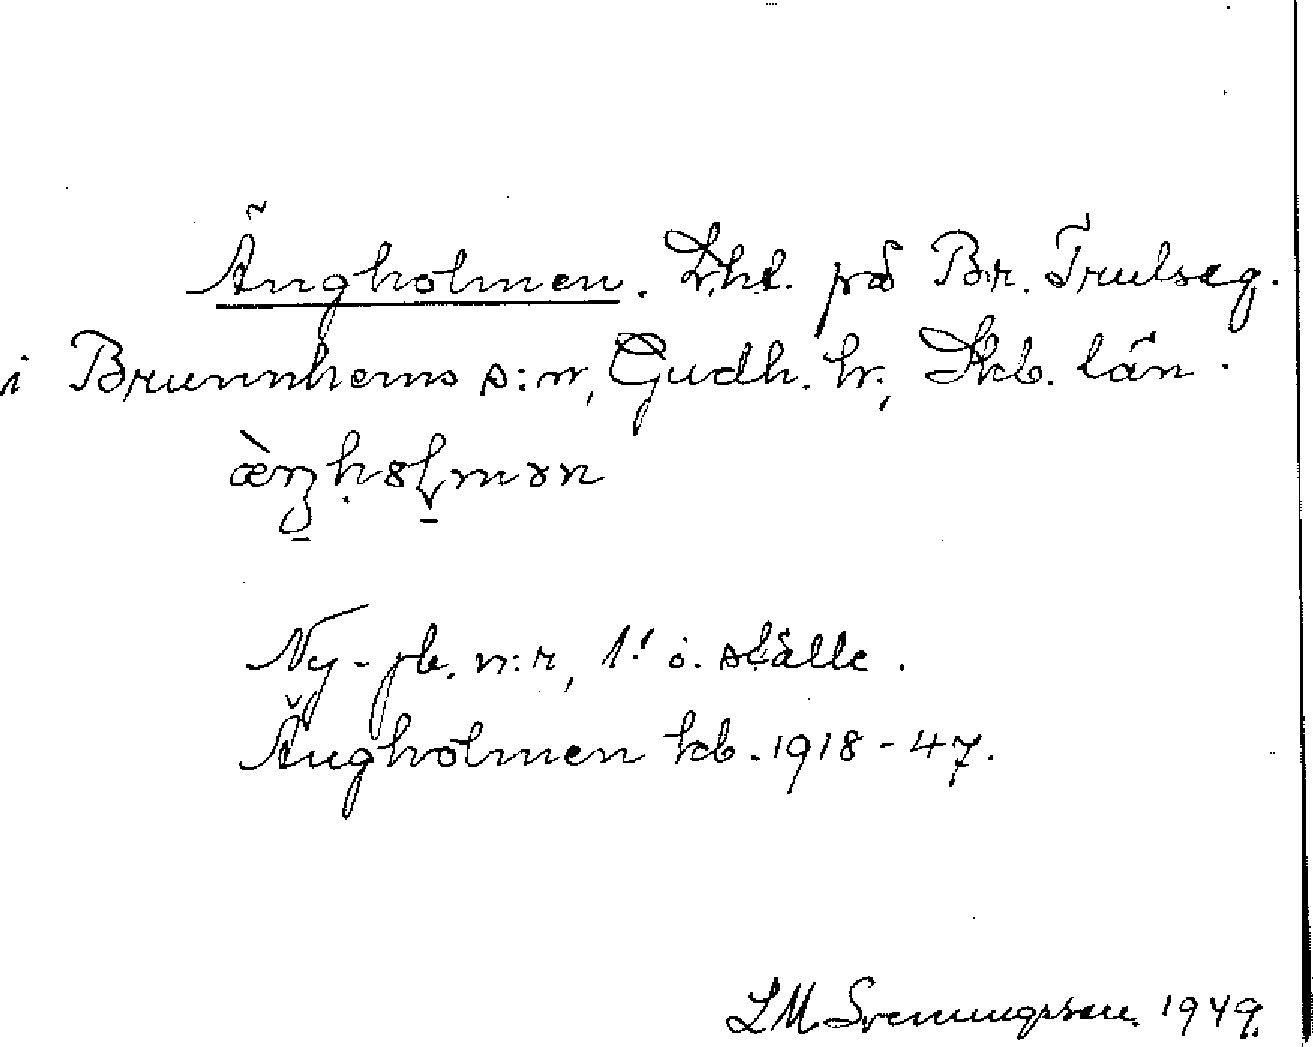 Ängholmen. Lht. på Br. Trulseg.
i Brunnhems s:n, Gudh. hr, Skb. län.
Ny-jb. n:r, 1! ö. ställe.
Ängholmen kb. 1918-47.
LM Svenungsson 1949.